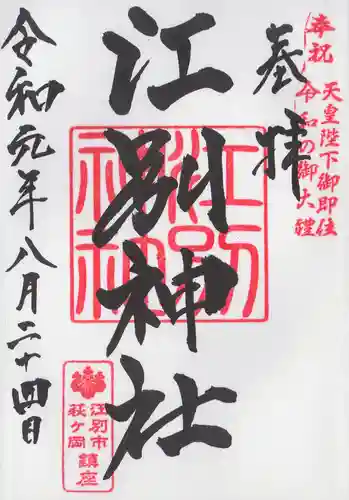 奉祝 天皇陛下御即位
令和の御大禮
奉拝
江別神社
江別神社
江別市
萩ケ岡
鎮座
令和元年八月二十四日